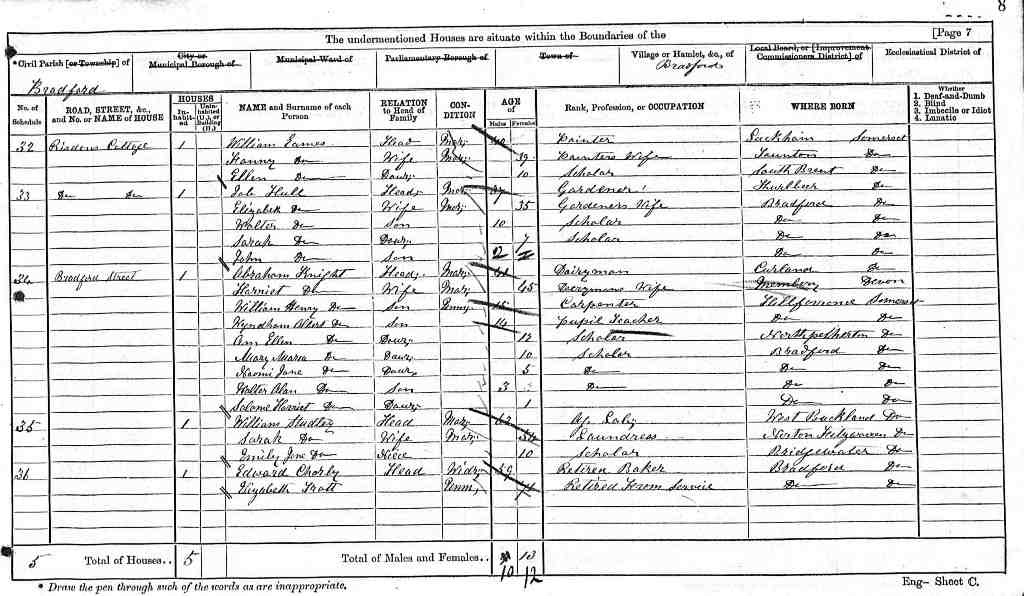 8
The undermentioned Houses are situate within the Boundaries of the [Page 7
*Civil Parish [or Township] of City or Municipal Borough of Municipal Ward of Parliamentary Borough of Town of Village or Hamlet, &c., of Local Board, or [Improvement Commissioners District] of Ecclesiastical District of
Bradford Bradford
No. of Schedule ROAD, STREET, &c., and No. or NAME of HOUSE HOUSES Inhabited Uninhabited (U.), or Building (B.) NAME and Surname of each Person RELATION to Head of Family CONDITION AGE of Males Females Rank, Profession, or OCCUPATION WHERE BORN Whether 1. Deaf-and-Dumb 2. Blind 3. Imbecile or Idiot 4. Lunatic
32 Cottage 1 William Eames Head Mar Painter Somerset
Wife Mar 39 Painters Wife Taunton Do
Ellen Do Daur 10 Scholar South Brent Do
33 Do Do 1 Job Hull Head Mar 37 Gardener Thurlbeer Do
Elizabeth Do Wife Mar 35 Gardeners Wife Bradford Do
Walter Do Son 10 Scholar Do Do
Sarah Do Daur 7 Scholar Do Do
John Do Son 2 Do Do
34 Bradford Street 1 Abraham Knight Head Mar Dairyman Curland Do
Harriet Do Wife Mar 45 Wife Membury Devon
William Henry Do Son 15 Carpenter Somerset
Wyndham Albert Do Son 14 Pupil Teacher Do Do
Ann Ellen Do Daur 12 Scholar Northpetherton Do
Mary Maria Do Daur 10 Scholar Bradford Do
Naomi Jane Do Daur 5 Do Do Do
Walter Alan Do Son 3 Do Do Do
Salome Harriet Do Daur 1 Do Do
35 1 William Studley Head Mar Ag. Lab. West Buckland Do
Sarah Do Wife Mar Laundress Norton Fitzwarren Do
Emily Jane Do Niece 10 Scholar Bridgewater Do
36 1 Edward Chorley Head Widr 59 Retired Baker Bradford Do
Elizabeth Trott Retired From Service Do Do
5 Total of Houses.. 5 Total of Males and Females.. 13
10 12
* Draw the pen through such of the words as are inappropriate. Eng— Sheet C.